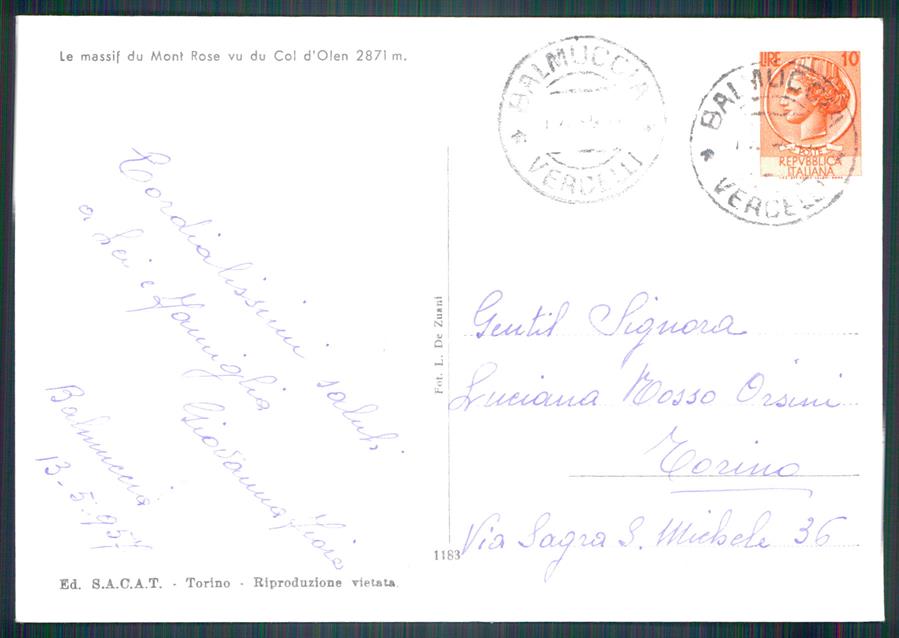 Le massif du Mont Rose vu du Col d'Olen 2871 m.
BALMUCCIA
VERCELLI
BALMUCCIA
VERCELLI
LIRE 10
POSTE
REPVBBLICA
ITALIANA
Cordialissimi saluti
a Lei e famiglia
Giovanna
Balmuccia
13-5-957
Fot. L. De Zuani
1183
Gentil Signora
Luciana Rosso Orsini
Torino
Via Sagra S. Michele 36
Ed. S.A.C.A.T. - Torino - Riproduzione vietata.